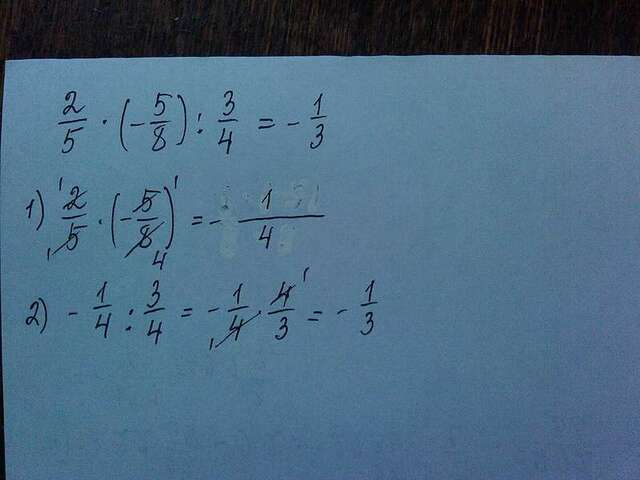 2/5 · (-5/8) : 3/4 = -1/3
1) 2/5 · (-5/8) = -1/4
2) -1/4 : 3/4 = -1/4 · 4/3 = -1/3